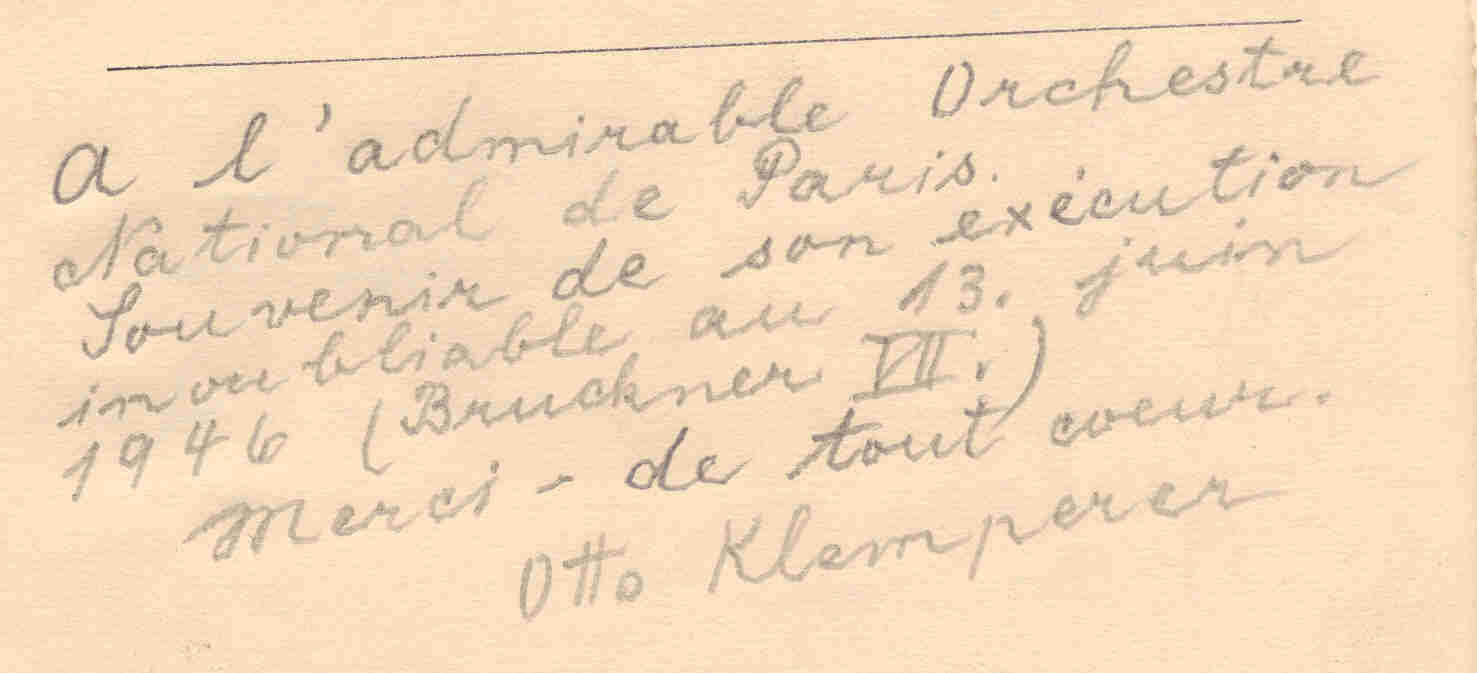 A l'admirable Orchestre
National de Paris.
Souvenir de son exécution
inoubliable au 13. juin
1946 (Bruckner VII.)
Merci - de tout coeur.
Otto Klemperer